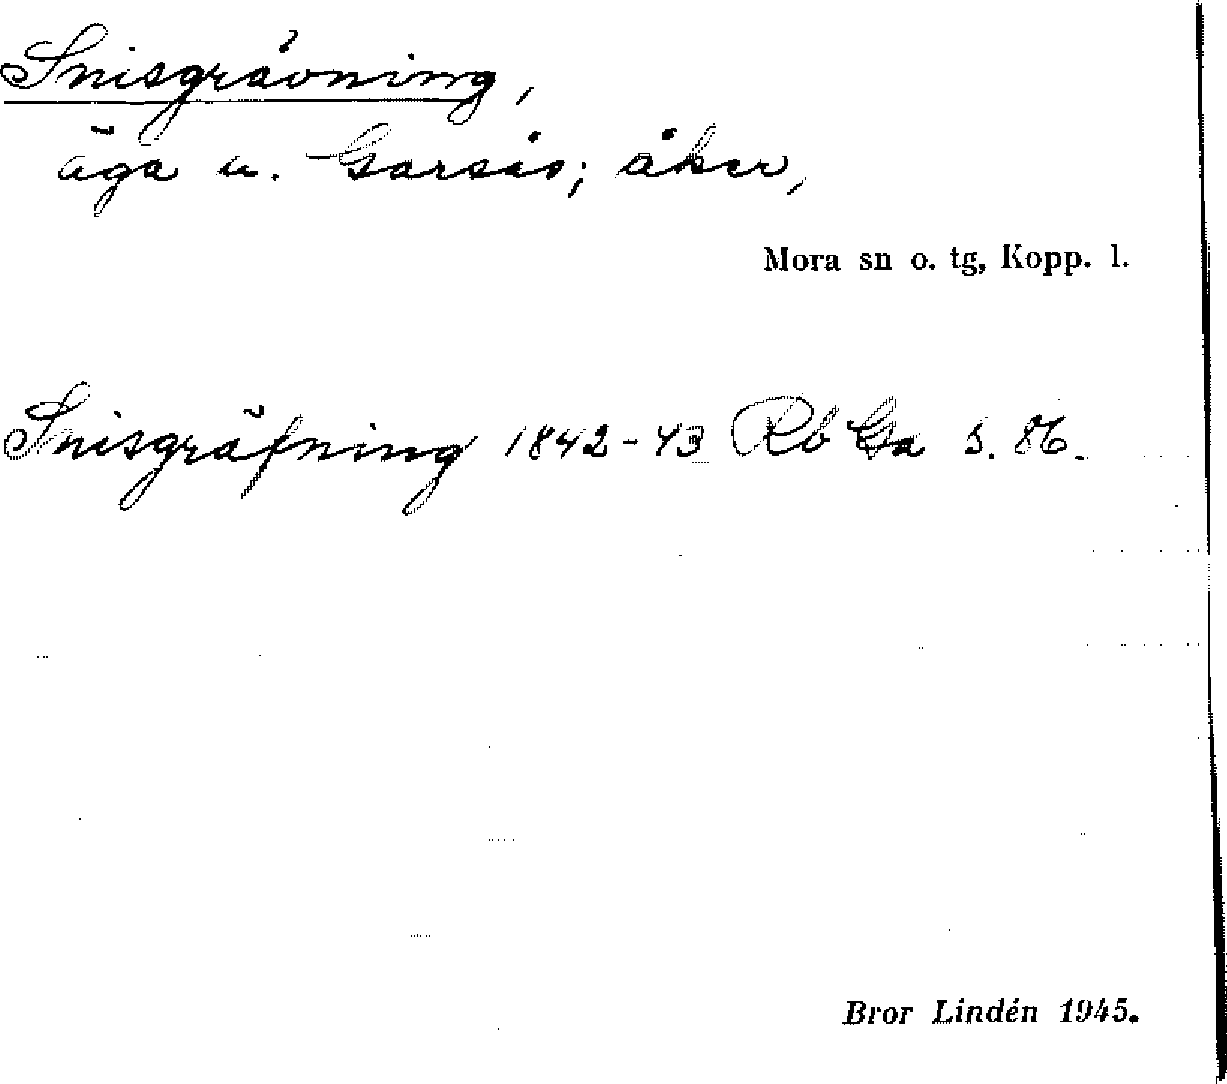 Snisgrävning,
äga u. Garsås; åker,
Mora sn o. tg, Kopp. l.
Snisgräfning 1842-43 Rb Ga s. 86.
Bror Lindén 1945.